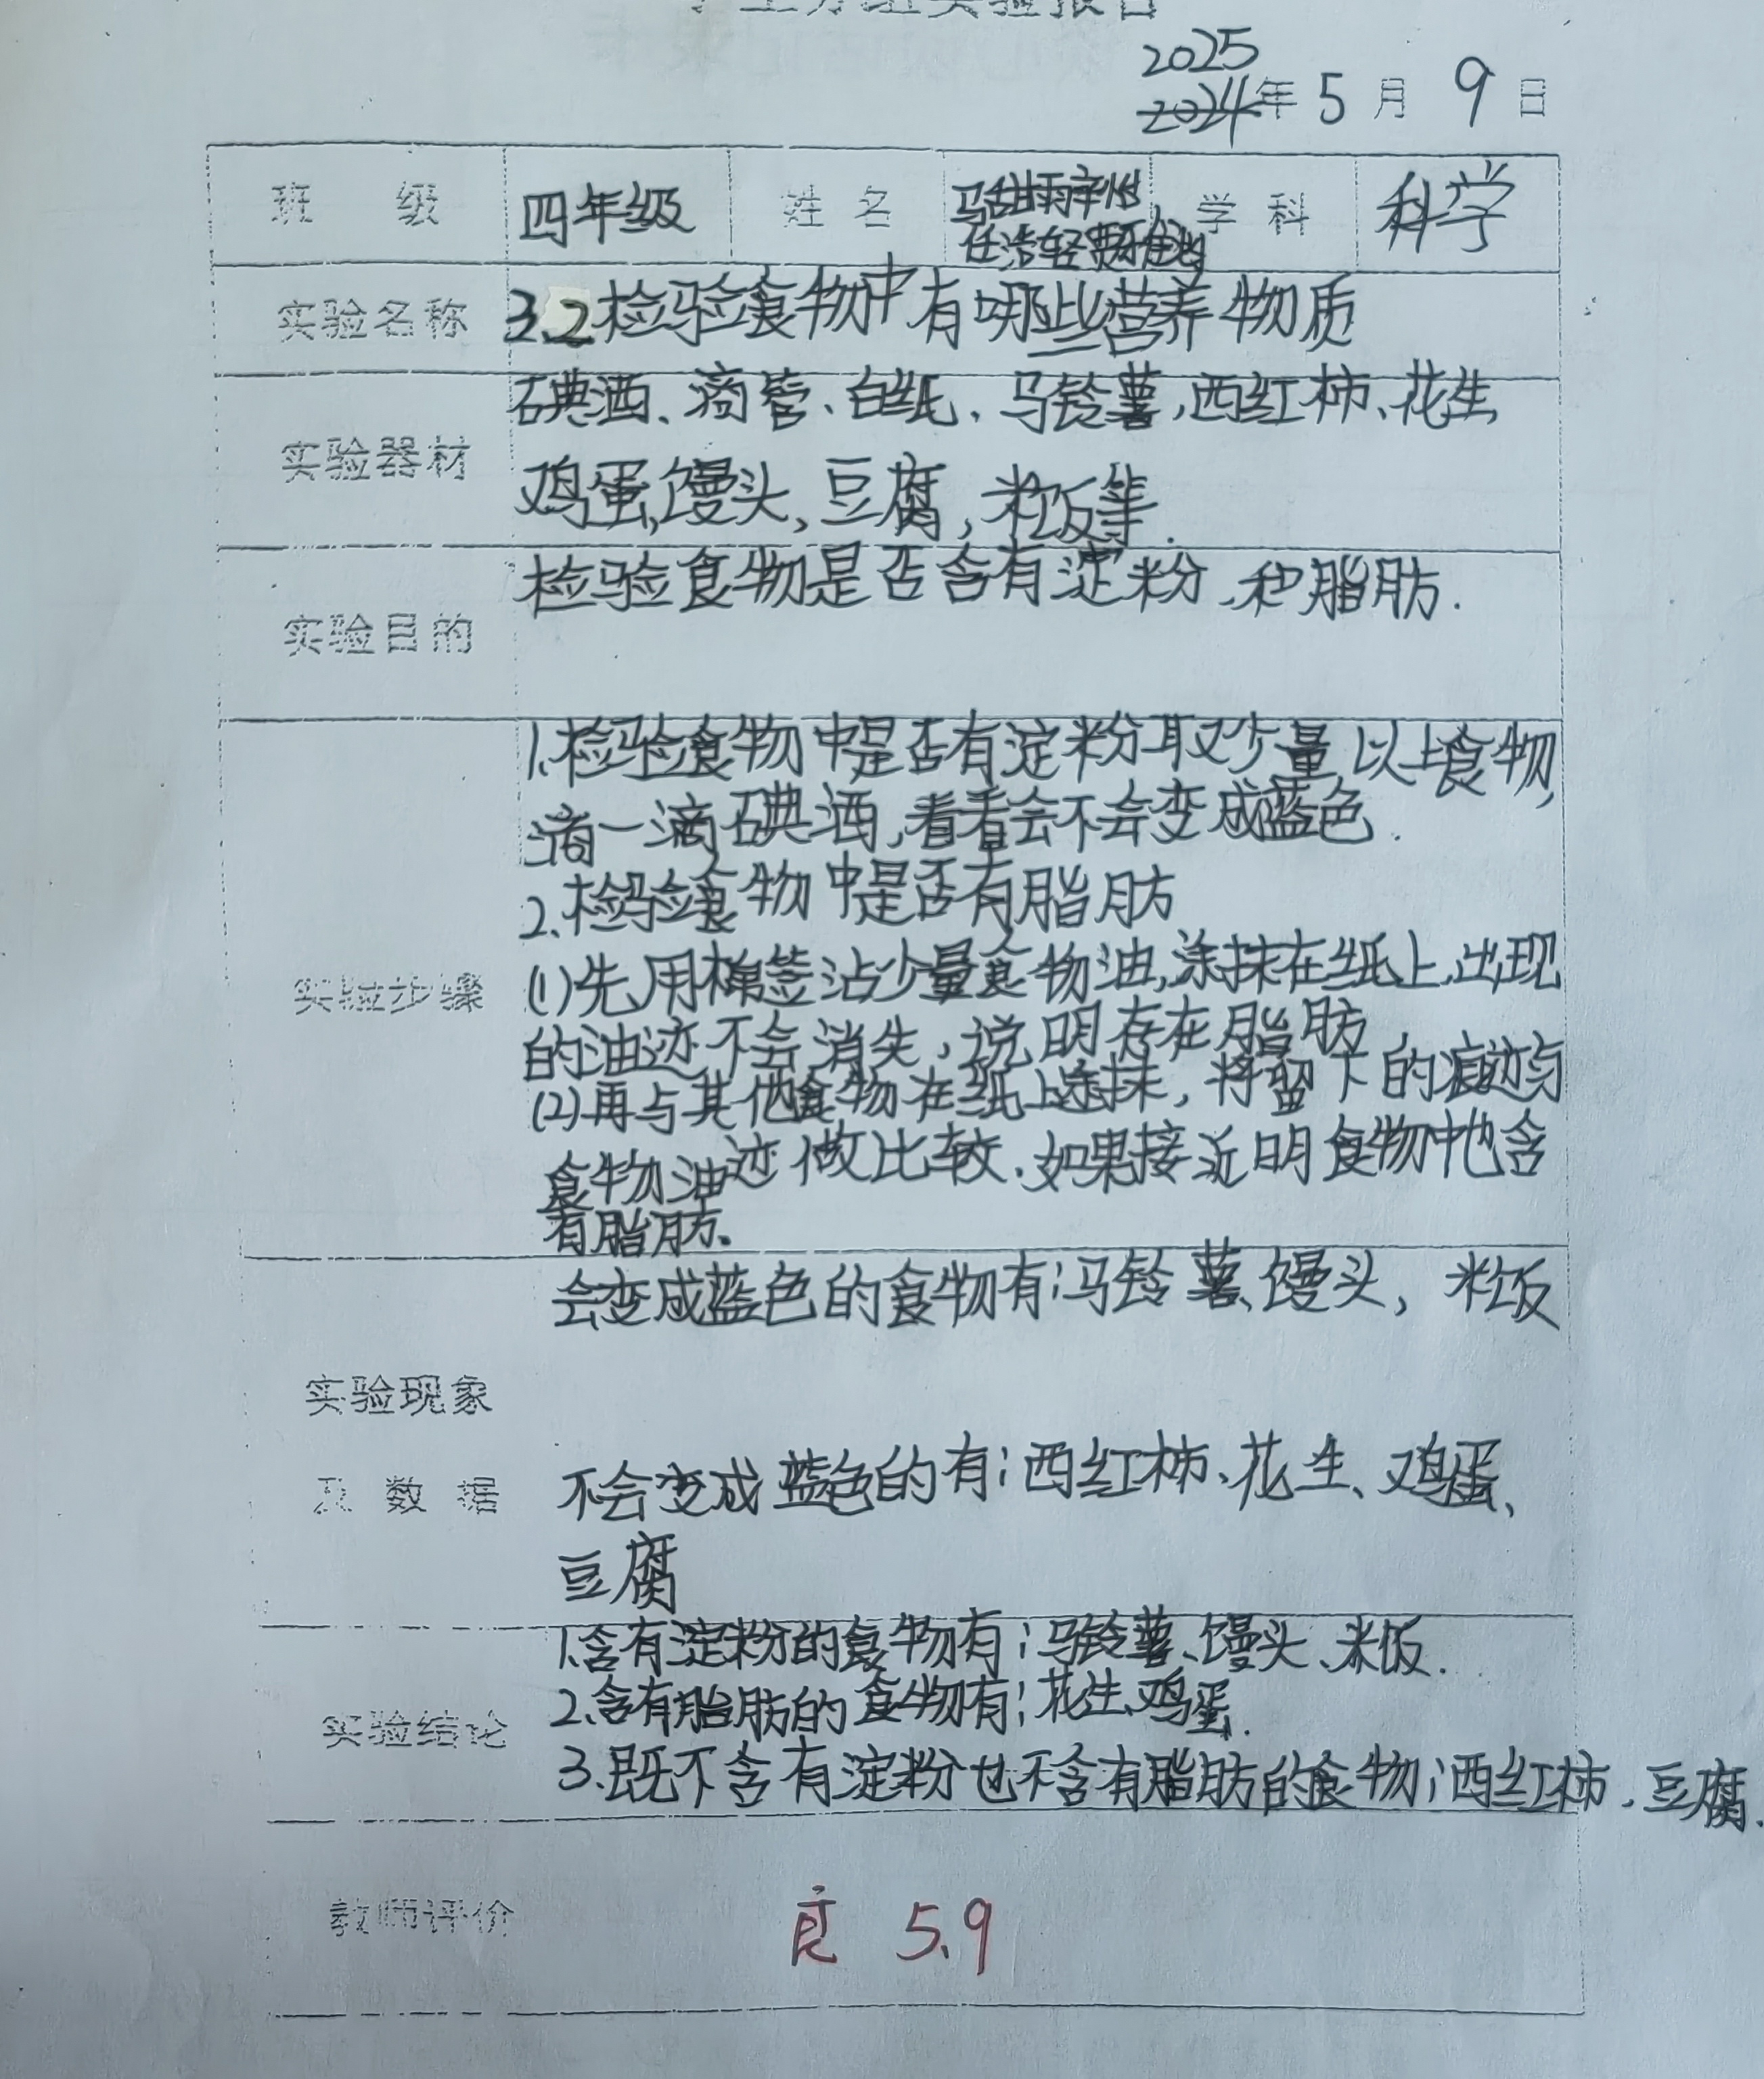 学生分组实验报告
2025
2024年 5 月 9 日
班 级 四年级 姓 名 学 科 科学
实验名称 3.2检验食物中有哪些营养物质
实验器材 碘酒、滴管、白纸、马铃薯,西红柿、花生
鸡蛋,馒头,豆腐,米饭等.
实验目的 检验食物是否含有淀粉、和脂肪.
实验步骤
1.检验食物中是否有淀粉取少量以上食物,
滴一滴碘酒,看看会不会变成蓝色.
2.检验食物中是否有脂肪
(1)先用棉签沾少量食物油,涂抹在纸上,出现
的油迹不会消失,说明存在脂肪
(2)再与其他食物在纸上涂抹,将留下的痕迹与
食物油迹做比较.如果接近明食物中也含
有脂肪.
实验现象
及 数 据
会变成蓝色的食物有:马铃薯、馒头,米饭
不会变成蓝色的有:西红柿、花生、鸡蛋、
豆腐
实验结论
1.含有淀粉的食物有:马铃薯、馒头、米饭.
2.含有脂肪的食物有:花生、鸡蛋.
3.既不含有淀粉也不含有脂肪的食物:西红柿、豆腐.
教师评价 良 5.9